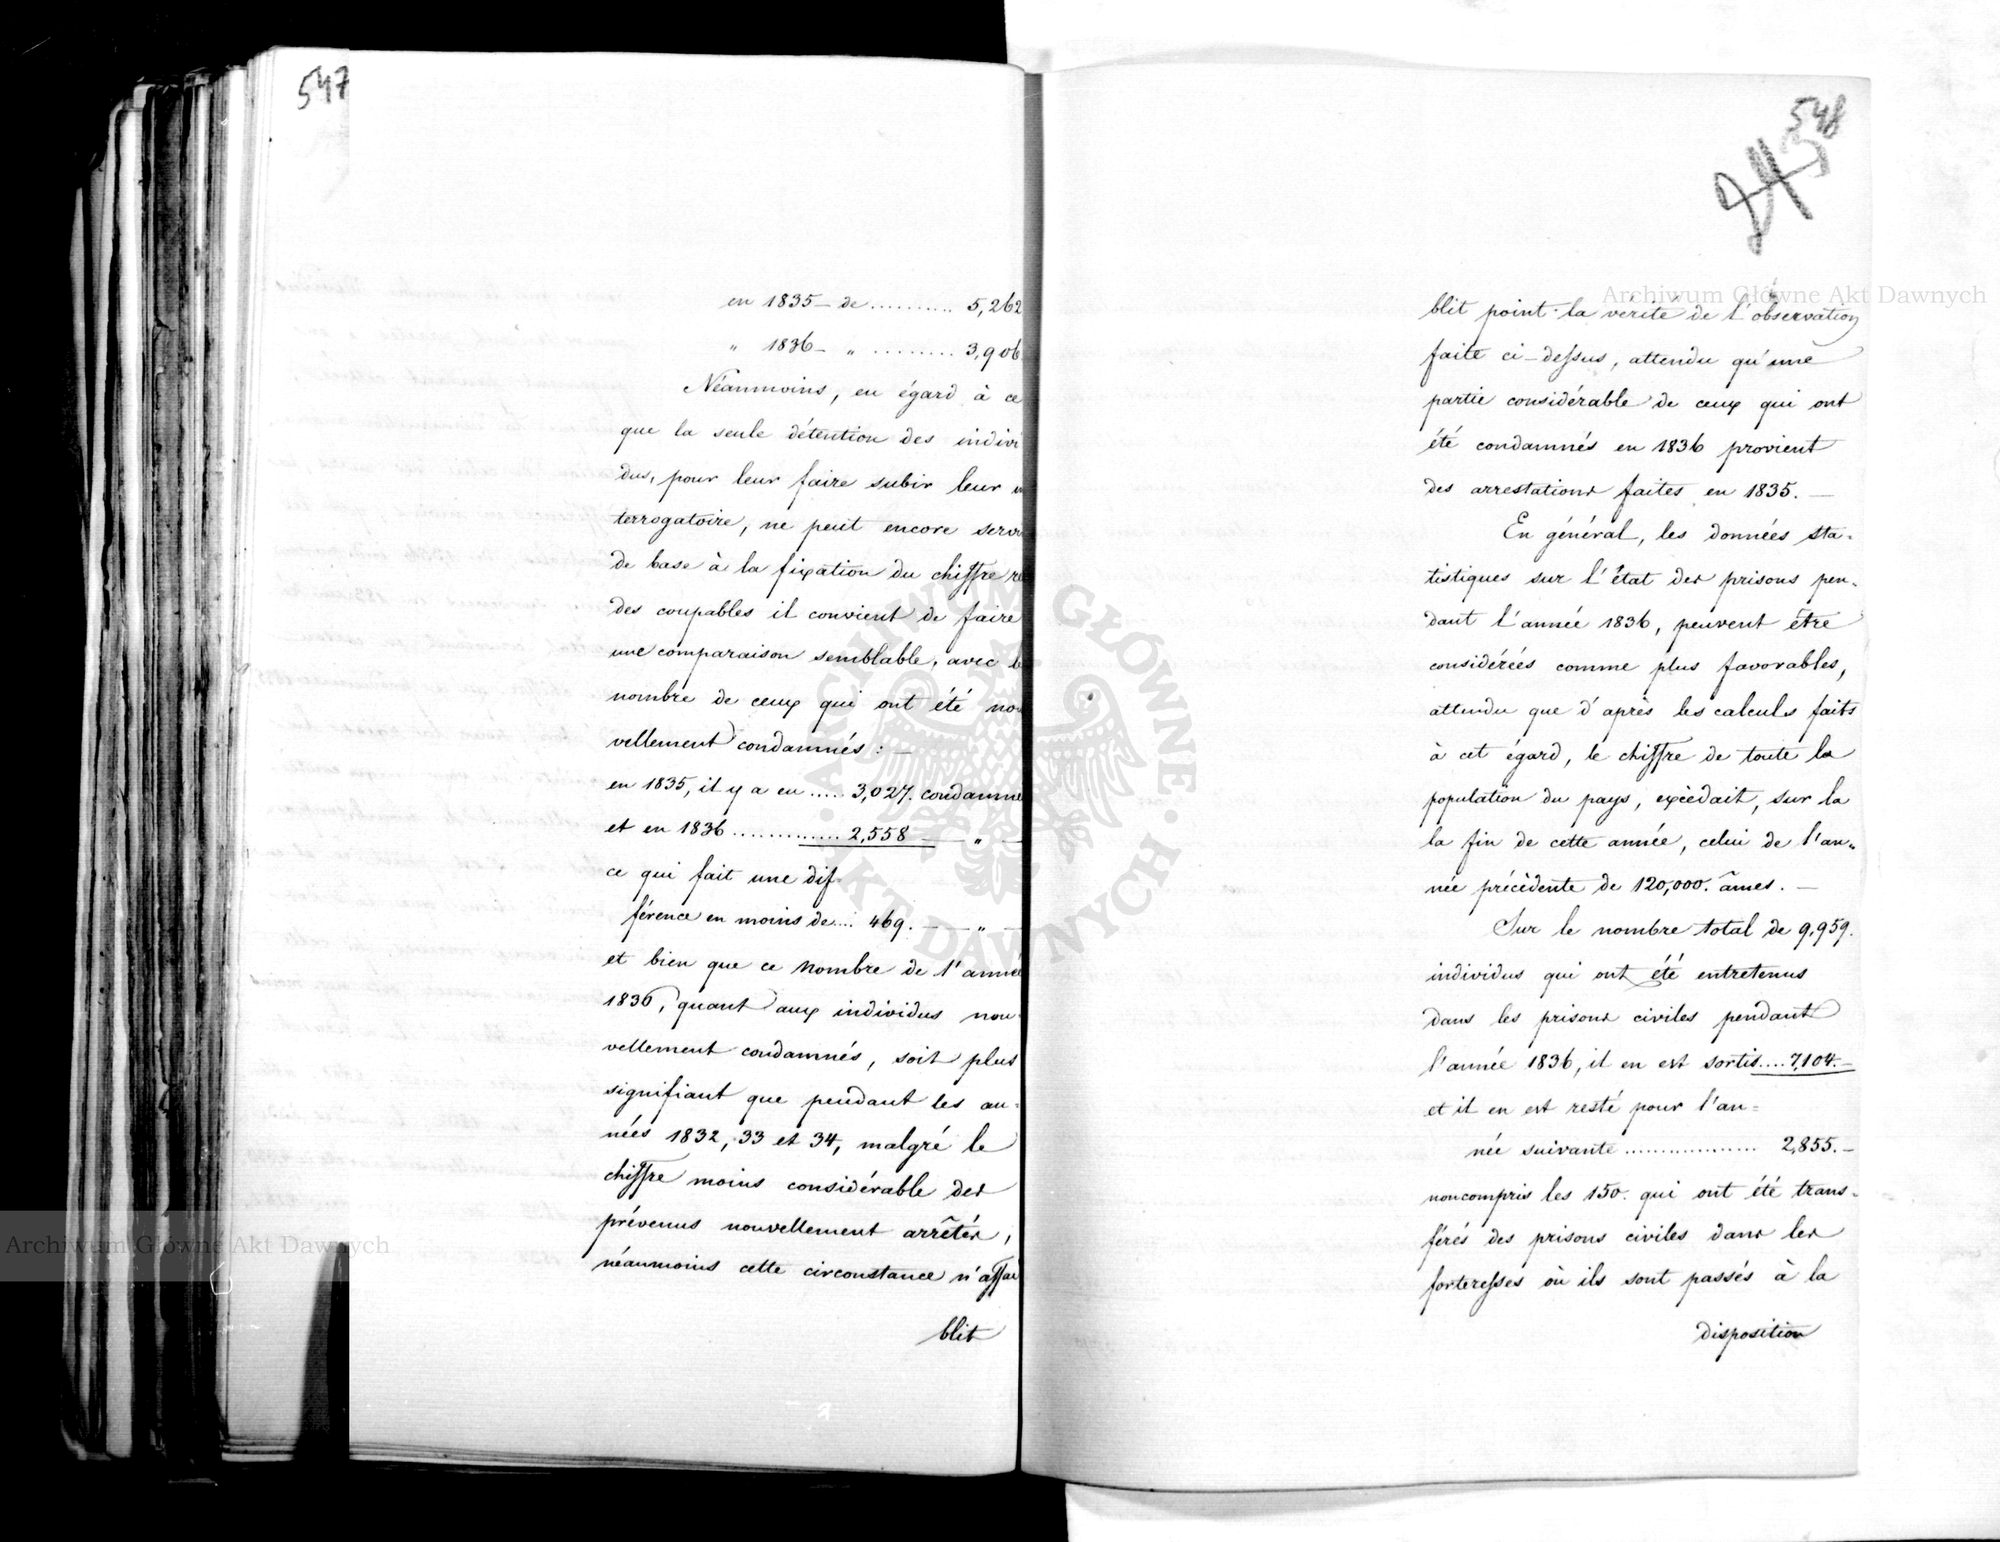 547
en 1835 — de .......... 5,262
" 1836 — " ......... 3,906
Néanmoins, eu égard à ce
que la seule détention des indivi
dus, pour leur faire subir leur in
terrogatoire, ne peut encore servir
de base à la fixation du chiffre
des coupables il convient de faire
une comparaison semblable, avec le
nombre de ceux qui ont été nou
vellement condamnés : —
en 1835, il y a eu ..... 3,027. condamnés
et en 1836 ............. 2,558 — " —
ce qui fait une dif-
férence en moins de .... 469. — " —
et bien que ce nombre de l'année
1836, quant aux individus nou-
vellement condamnés, soit plus
signifiant que pendant les an=
nées 1832, 33 et 34, malgré le
chiffre moins considérable des
prévenus nouvellement arrêtés,
néanmoins cette circonstance n'affai
blit
548
243
blit point la vérité de l'observation
faite ci-dessus, attendu qu'une
partie considérable de ceux qui ont
été condamnés en 1836 provient
des arrestations faites en 1835. —
En général, les données sta=
tistiques sur l'état des prisons pen=
dant l'année 1836, peuvent être
considérées comme plus favorables,
attendu que d'après les calculs faits
à cet égard, le chiffre de toute la
population du pays, excèdait, sur la
la fin de cette année, celui de l'an=
née précèdente de 120,000. âmes. —
Sur le nombre total de 9,959.
individus qui ont été entretenus
dans les prisons civiles pendant
l'année 1836, il en est sortis .... 7,104. —
et il en est resté pour l'an=
née suivante .................. 2,855. —
noncompris les 150. qui ont été trans=
férés des prisons civiles dans les
forteresses où ils sont passés à la
disposition
Archiwum Główne Akt Dawnych
Archiwum Główne Akt Dawnych
ARCHIWUM GŁÓWNE · AKT DAWNYCH ·